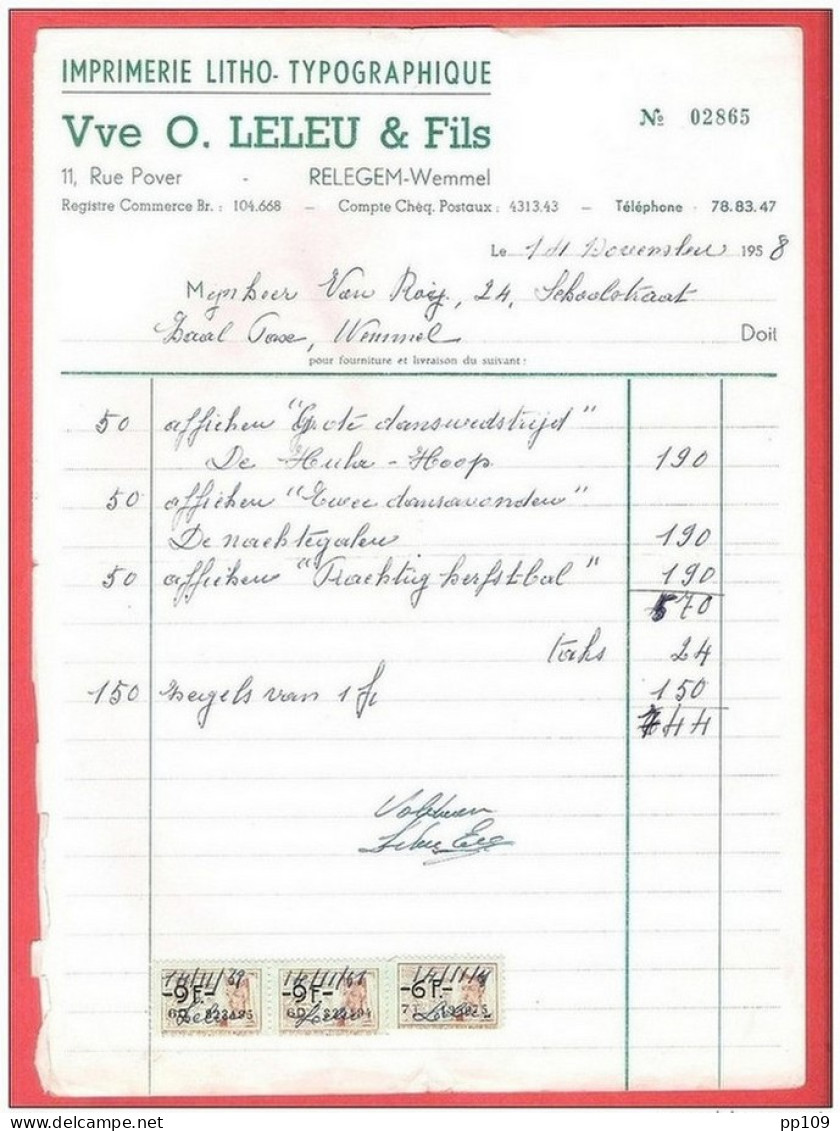 IMPRIMERIE LITHO-TYPOGRAPHIQUE
Vve O. LELEU & Fils
№ 02865
11, Rue Pover - RELEGEM-Wemmel
Registre Commerce Br.: 104.668 - Compte Chèq. Postaux: 4313.43 - Téléphone 78.83.47
Le 14 November 1958
Mynheer Van Roy, 24, Schoolstraat
Zaal Wemmel Doit
pour fourniture et livraison du suivant:
50 affichen "Grote danswedstrijd"
De Hoop 190
50 affichen "Twee dansavonden"
De nachtegalen 190
50 affichen "Prachtig herfstbal" 190
570
taks 24
150 zegels van 1 fr 150
744
Voldaan
-9F.- -9F.- -6F.-
pp109